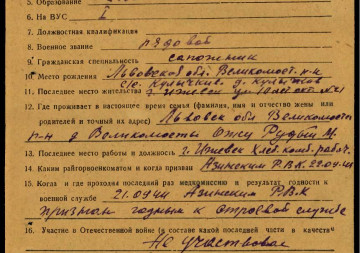 5. Образование
6. На ВУС I
7. Должностная квалификация
8. Военное звание рядовой
9. Гражданская специальность сапожник
10. Место рождения Львовская обл. Великомост. р-н
11. Последнее место жительства г. Ижевск ул.
12. Где проживает в настоящее время семья (фамилия, имя и отчество жены или
родителей и точный их адрес) Львовск обл Великомостн
р-н д Великомосты Отец Рудый М.
13. Последнее место работы и должность г. Ижевск Хлеб. комб. рабоч.
14. Каким райгорвоенкоматом и когда призван Азинским Р.В.К. 22.04.41
15. Когда и где проходил последний раз медкомиссию и результат годности к
военной службе 21.0441 Азинским Р.В.К
признан годным к строевой службе
16. Участие в Отечественной войне (в составе какой последней части в качестве
Не участвовал